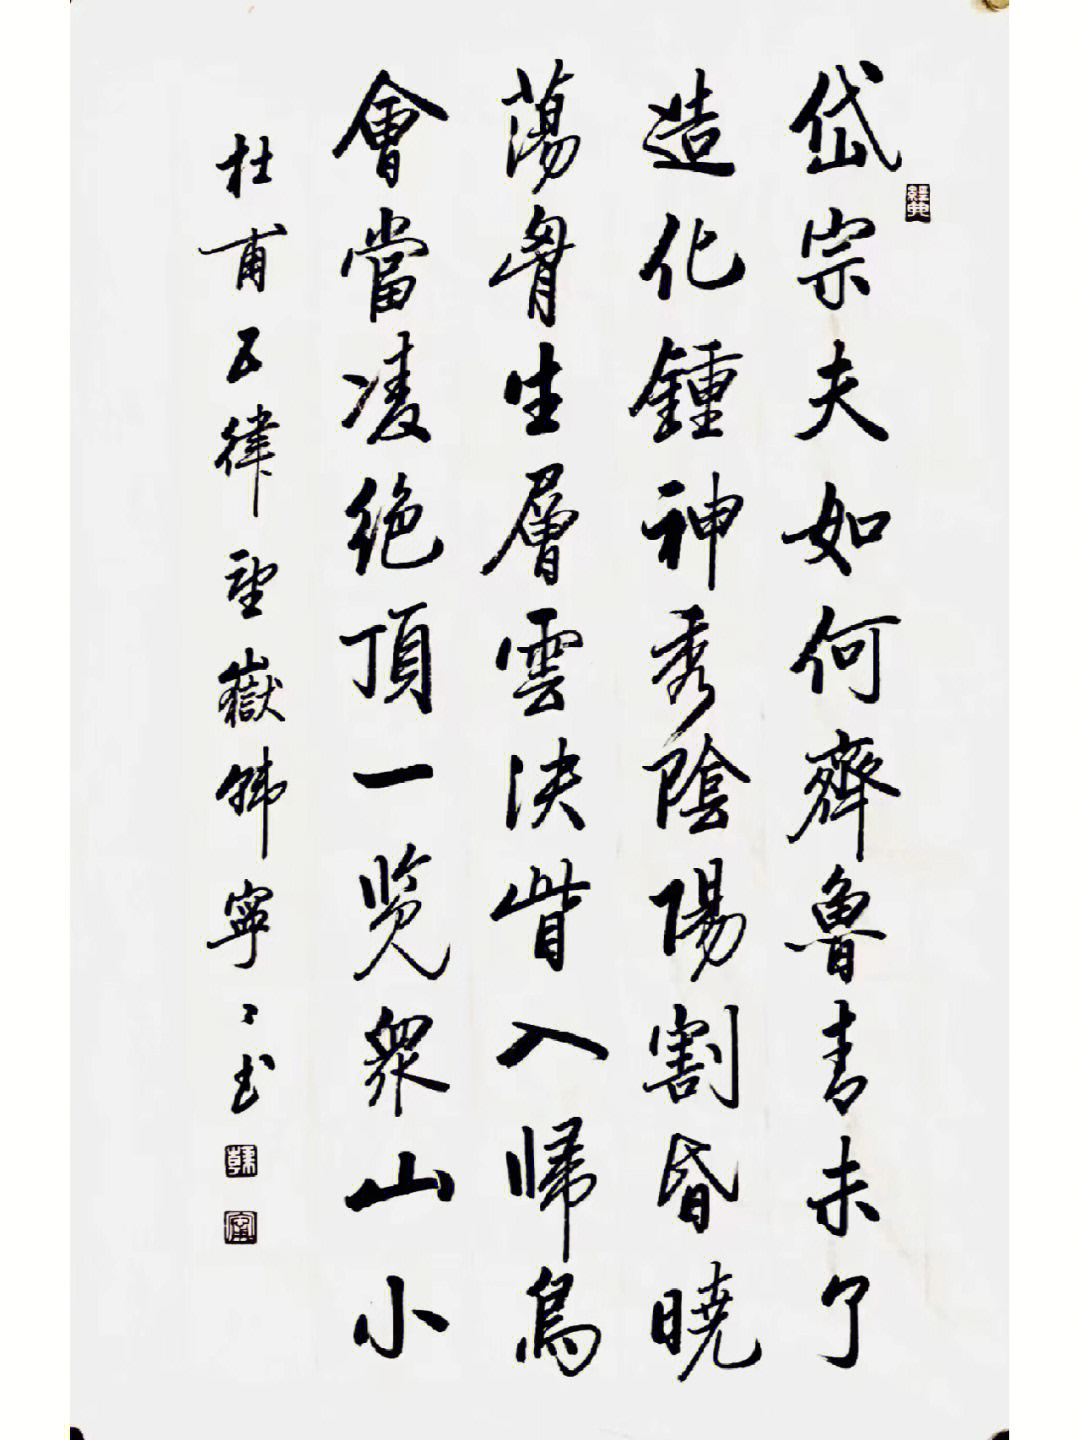 岱宗夫如何齊魯青未了
造化鍾神秀陰陽割昏曉
蕩胷生層雲決眥入帰鳥
會當凌絶頂一览衆山小
杜甫五律望嶽韩寧〻书